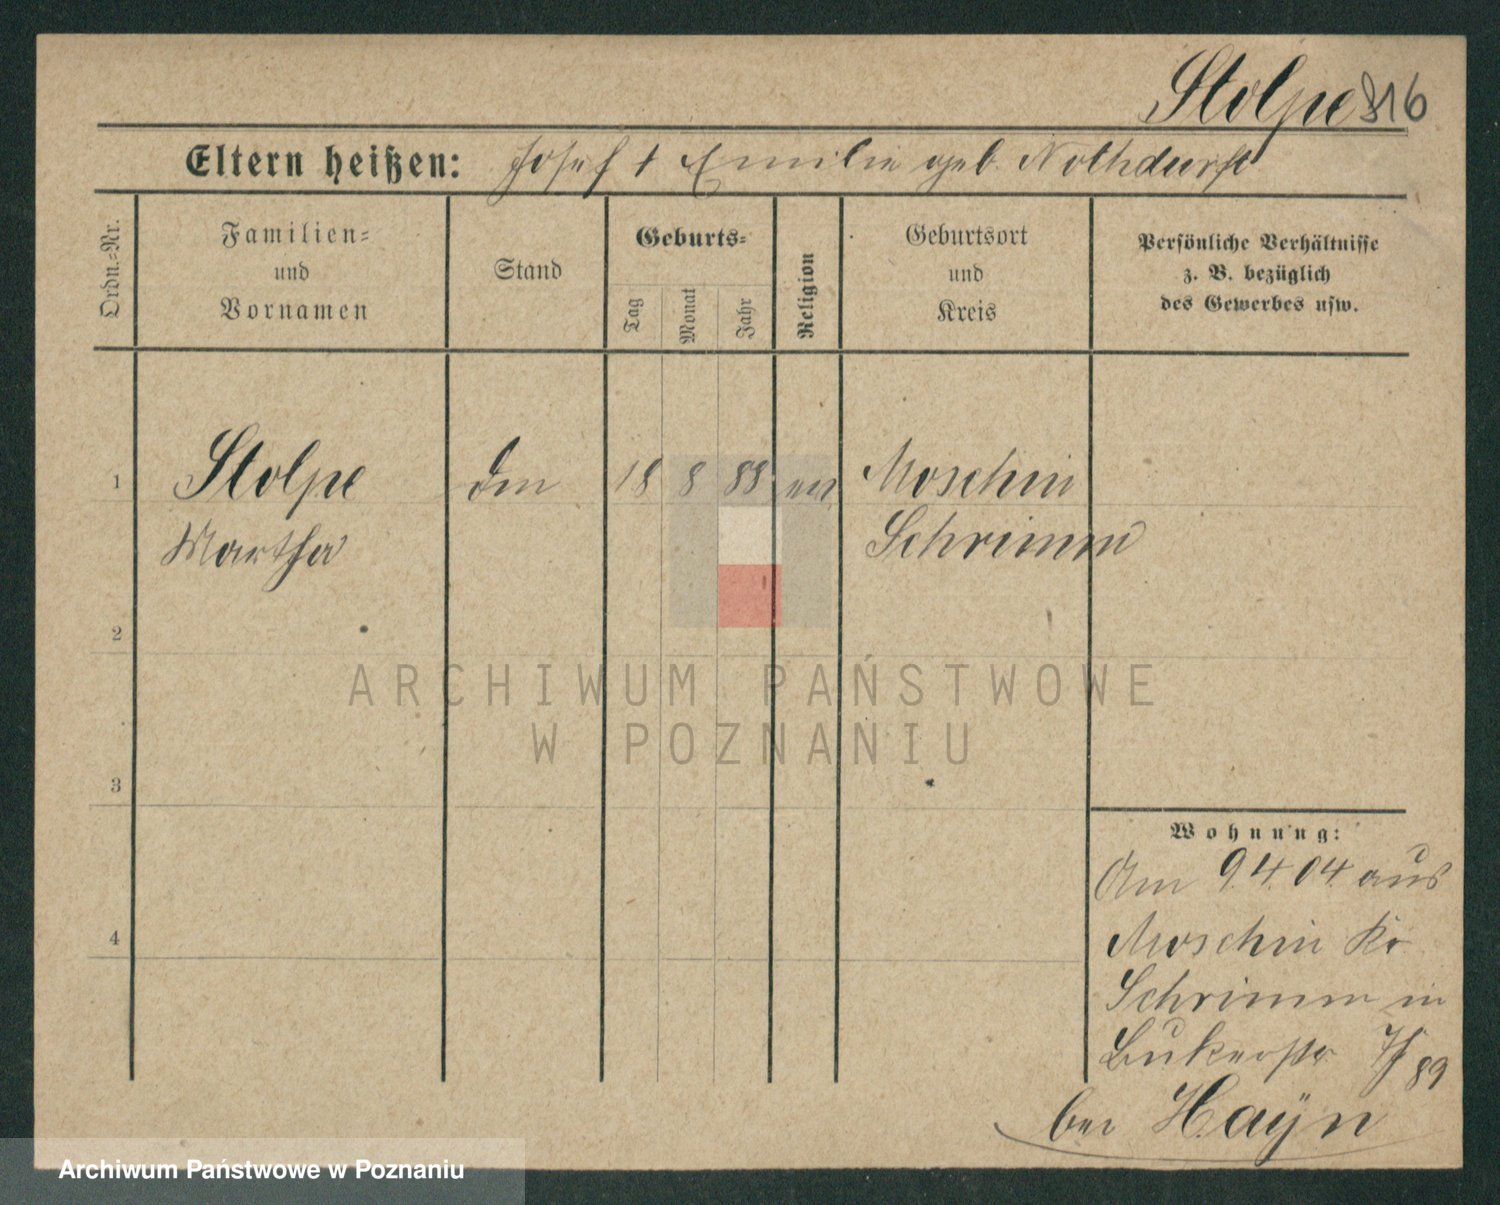 Stolpe 816
Eltern heißen: Josef † Emilie geb. Nothdurft
Ordn.=Nr.
Familien=
und
Vornamen
Stand
Geburts=
Tag
Monat
Jahr
Religion
Geburtsort
und
Kreis
Persönliche Verhältnisse
z. B. bezüglich
des Gewerbes usw.
1 Stolpe 18 8 88 Moschin
Martha Schrimm
2
3
4
Wohnung:
Am 9.4.04. aus
Moschin Kr.
Schrimm in
Bukerstr
89
bei Hayn
ARCHIWUM PAŃSTWOWE
W POZNANIU
Archiwum Państwowe w Poznaniu